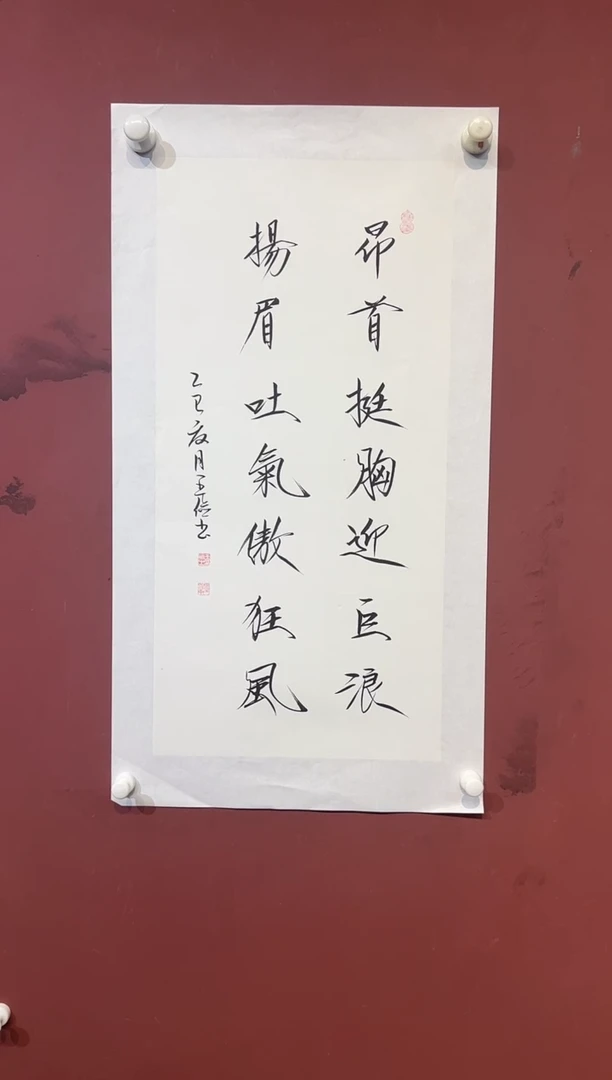 昂首挺胸迎巨浪
揚眉吐氣傲狂風
乙巳夏月王書